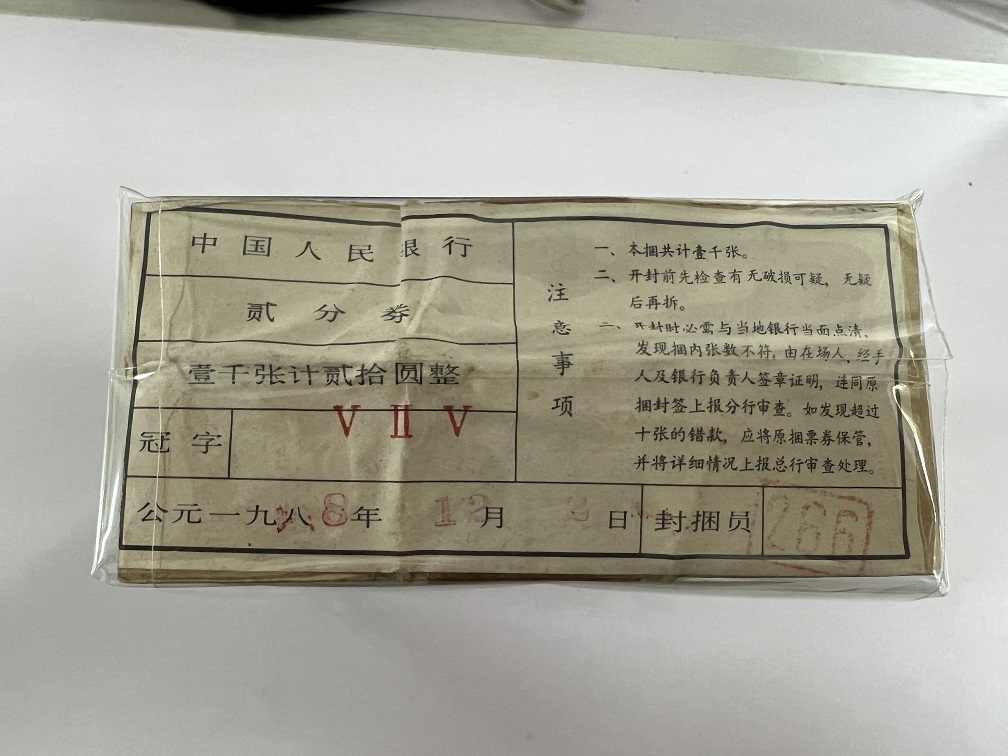 中国人民银行
贰分券
壹千张计贰拾圆整
冠字 V II V
公元一九八8年 12月 日 封捆员 266
注意事项
一、本捆共计壹千张。
二、开封前先检查有无破损可疑，无疑
后再拆。
三、开封时必需与当地银行当面点清、
发现捆内张数不符，由在场人、经手
人及银行负责人签章证明，连同原
捆封签上报分行审查。如发现超过
十张的错款，应将原捆票券保管，
并将详细情况上报总行审查处理。